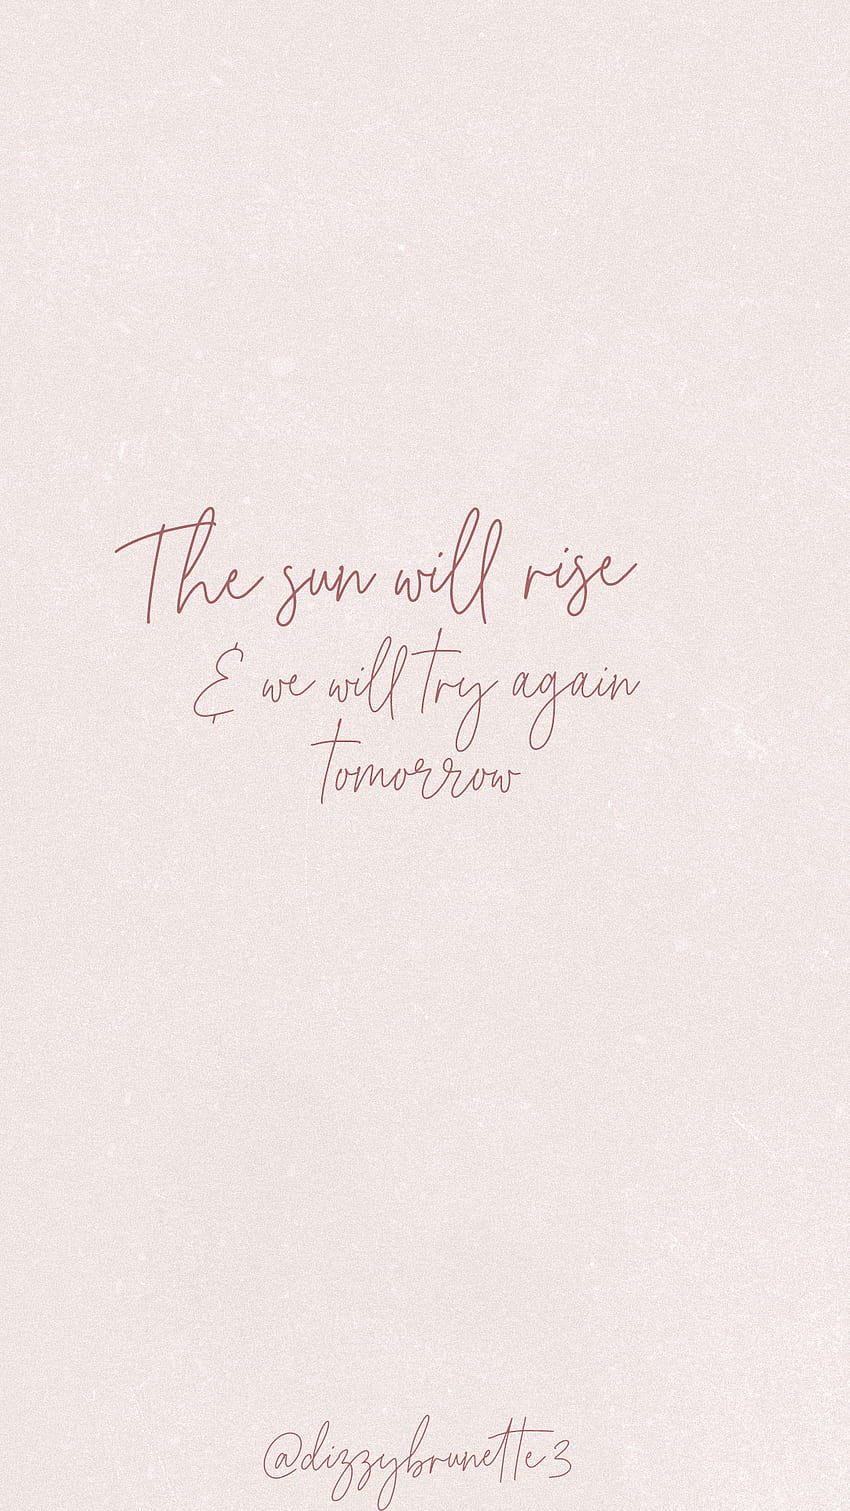 The sun will rise
& we will try again
tomorrow
@dizzybrunette3